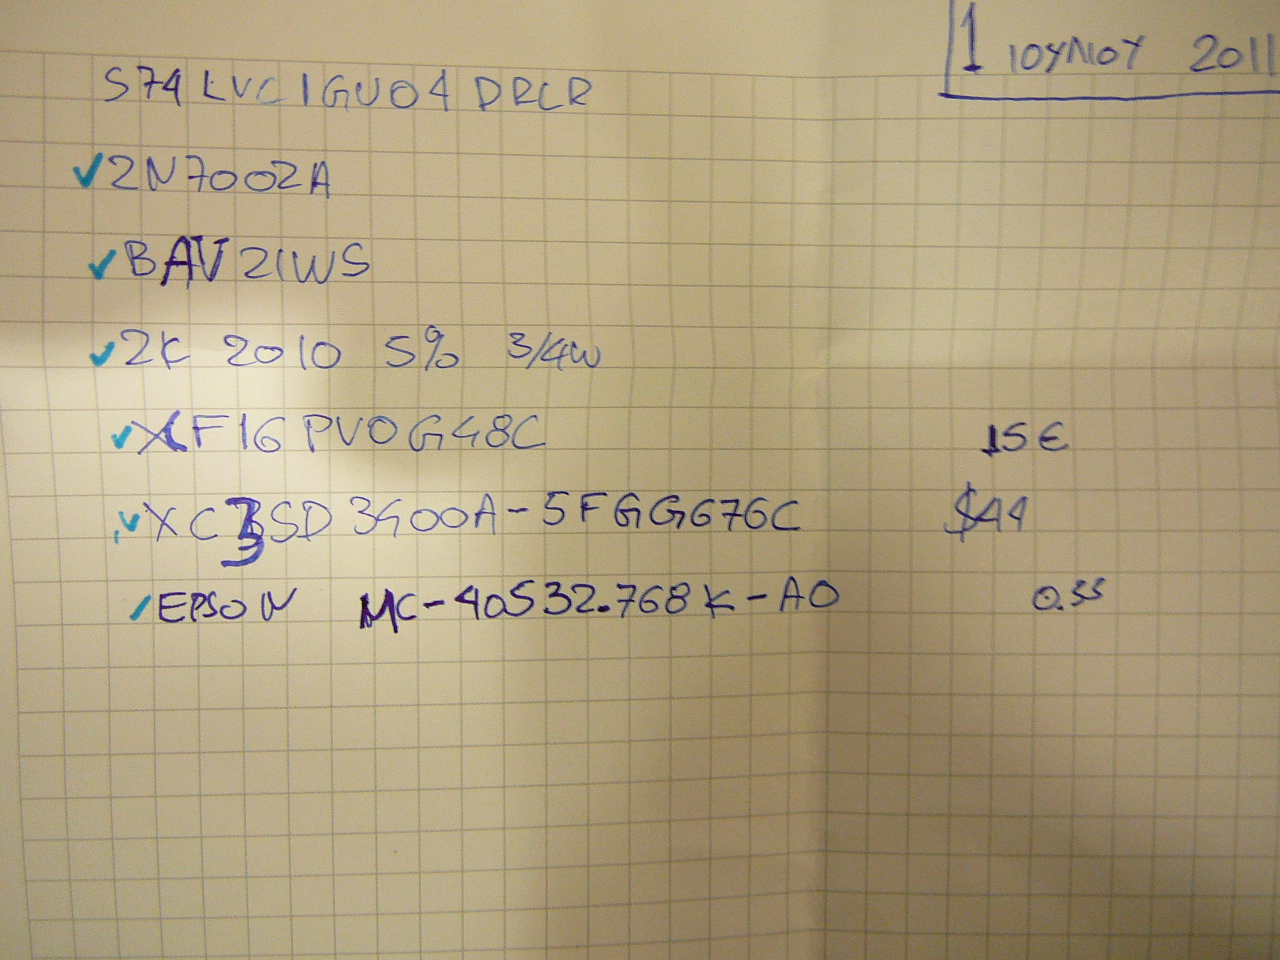 1 ΙΟΥΝΙΟΥ 2011
S74LVC1GU04DRCR
✓2N7002A
✓BAV21WS
✓2K 2010 5% 3/4W
✓XCF16PV0G48C 15€
✓XC3SD3400A-5FGG676C $44
✓EPSON MC-40532.768K-A0 0.55